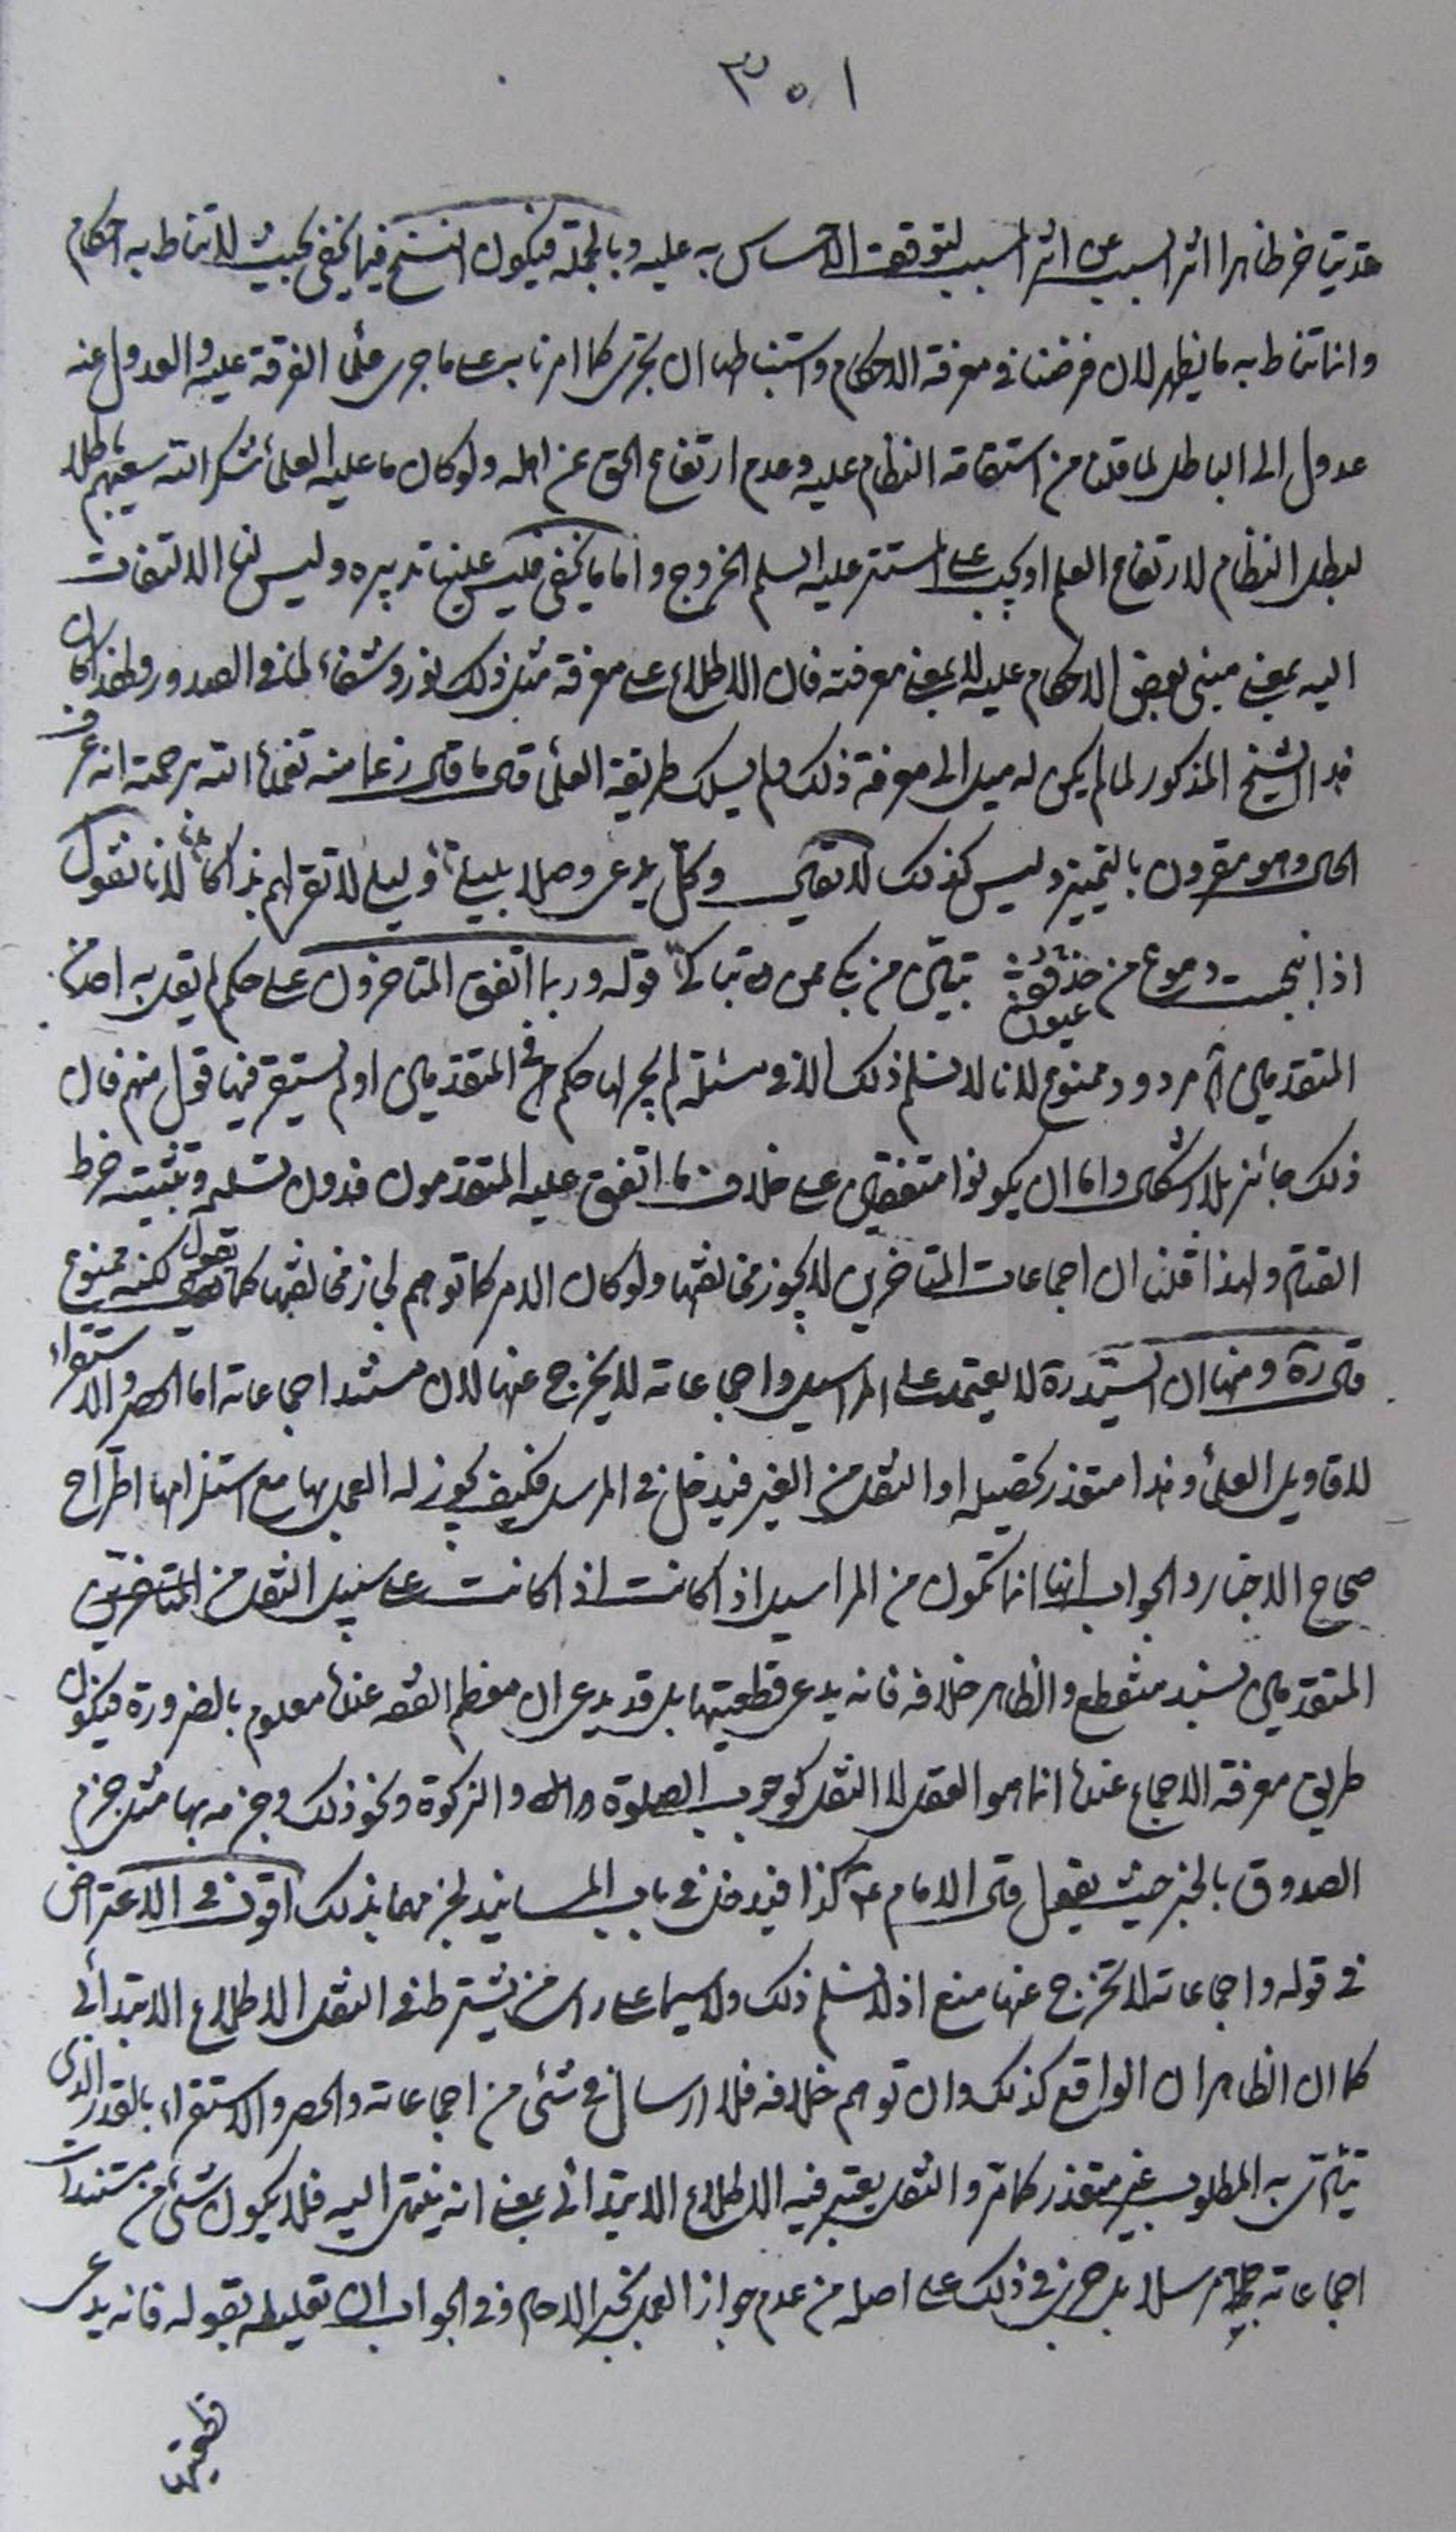 ٣٠١
قد يتاخر ظاهرا اثر السبب عن اثر المسبب لتوقف الاساس به عليه وبالجملة فيكون النسخ فيما يخفى بحيث لا تناط به احكام
وانما تناط به ما يظهر لان فرضنا في معرفة الاحكام واستنباطها ان نجرى كما امرنا به على ما جرى علماء الفرقة عليه والعدول عنه
عدول الى الباطل لما قلنا من استقامة النظام عليه وعدم ارتفاع الحق عن اهله ولو كان ما عليه العلماء شكر الله سعيهم باطلا
لبطل النظام لارتفاع العلم او يجب على المستتر عليه السلم الخروج واما ما يخفى فليس علينا تدبيره وليس لنا الالتفات
اليه بمعنى مبنى بعض الاحكام عليه لا بمعنى معرفته فان الاطلاع على معرفة مثل ذلك نور وشفاء لما في الصدور ولهذا كان
هذا الشيخ المذكور لما لم يكن له ميل الى معرفة ذلك ولم يسلك طريقة العلماء قال ما قال زعما منه تغمده الله برحمته انه عرف
الحال وهو مقرون بالتميز وليس كذلك لا تقل وكل يدعى وصلا بليلى وليلى لا تقر لهم بذاكا لانا نقول
اذا انبجست دموع من عيون تبين من بكى ممن تباكى قوله وربما اتفق المتاخرون على حكم لم يقل به احد من
المتقدمين آه مردود وممنوع لانا لا نسلم ذلك الا في مسئلة لم يجر لها حكم في المتقدمين او لم يستقر فيها قول منهم فان
ذلك جائز بلا اشكال واما ان يكونوا متفقين على خلاف ما اتفق عليه المتقدمون فدون تسليمه وتثبيته خرط
القتاد ولهذا قلنا ان اجماعات المتاخرين لا يجوز مخالفتها ولو كان الامر كما توهم لجاز مخالفتها كما يقول لكنه ممنوع
قال ره ومنها ان السيد ره لا يعتمد على المراسيل واجماعاته لا يخرج عنها لان مستند اجماعاته اما الحصر والاستقراء
لاقاويل العلماء وهذا متعذر تحصيله او النقل من الغير فيدخل في المرسل فكيف يجوز له العمل بها مع استلزامها اطراح
صحاح الاخبار والجواب انها انما تكون من المراسيل اذا كانت اذا كانت على سبيل النقل من المتاخرين
المتقدمين بسند منقطع والظاهر خلافه فانه يدعى قطعيتها بل قد يدعى ان معظم الفقه عندنا معلوم بالضرورة فيكون
طريق معرفة الاجماع عندنا انما هو العقل لا النقل كوجوب الصلوة والزكوة ونحو ذلك وجزمه بها مثل جزم
الصدوق بالخبر حيث يقول قال الامام ع كذا فيدخل في باب المسانيد لجزمهما بذلك اقول في الاعتراض
في قوله واجماعاته لا تخرج عنها منع اذ لا نسلم ذلك ولا سيما على راى من يشترط في النقل الاطلاع الابتدائى
كما ان الظاهر ان الواقع كذلك وان توهم خلافه فلا ارسال في شئ من اجماعاته والحصر والاستقراء بالقدر الذى
يتادى به المطلوب غير متعذر كما مر والنقل يعتبر فيه الاطلاع الابتدائى بمعنى انه ينتهى اليه فلا يكون شئ من مستندات
اجماعاته مرسلا بل جرى في ذلك على اصله من عدم جواز العمل بخبر الاحاد وفي الجواب ان تعليله بقوله فانه يدعى
قطعيتها